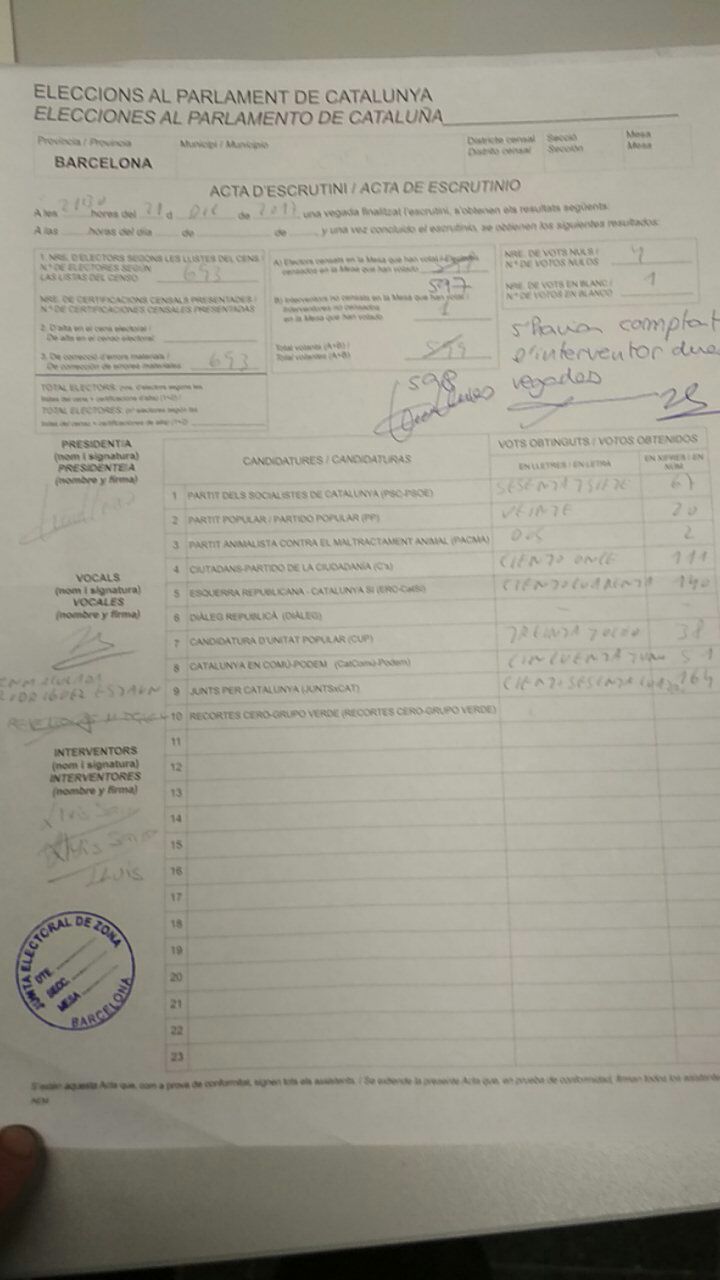 ELECCIONS AL PARLAMENT DE CATALUNYA
ELECCIONES AL PARLAMENTO DE CATALUÑA
Província / Provincia Municipi / Municipio Districte censal Secció Mesa
Distrito censal Sección Mesa
BARCELONA
ACTA D'ESCRUTINI / ACTA DE ESCRUTINIO
A les 2130 hores del 21 d DIC de 2017, una vegada finalitzat l'escrutini, s'obtenen els resultats següents:
A las horas del día de de y una vez concluido el escrutinio, se obtienen los siguientes resultados:
1. NRE. D'ELECTORS SEGONS LES LLISTES DEL CENS /
Nº DE ELECTORES SEGÚN
LAS LISTAS DEL CENSO 693
NRE. DE CERTIFICACIONS CENSALS PRESENTADES /
Nº DE CERTIFICACIONES CENSALES PRESENTADAS
2. D'alta en el cens electoral /
De alta en el censo electoral
3. De correcció d'errors materials /
De corrección de errores materiales 693
TOTAL ELECTORS
TOTAL ELECTORES
A) Electors censats en la Mesa que han votat / Electores
censados en la Mesa que han votado
597
B) Interventors no censats en la Mesa que han votat /
Interventores no censados
en la Mesa que han votado 1
Total votants (A+B) /
Total votantes (A+B) 599
598
NRE. DE VOTS NULS /
Nº DE VOTOS NULOS 4
NRE. DE VOTS EN BLANC /
Nº DE VOTOS EN BLANCO 1
s'havia comptat
l'interventor dues
vegades
PRESIDENT/A
(nom i signatura)
PRESIDENTE/A
(nombre y firma)
VOCALS
(nom i signatura)
VOCALES
(nombre y firma)
INTERVENTORS
(nom i signatura)
INTERVENTORES
(nombre y firma)
Lluis
CANDIDATURES / CANDIDATURAS VOTS OBTINGUTS / VOTOS OBTENIDOS
EN LLETRES / EN LETRA EN XIFRES / EN NÚM
1 PARTIT DELS SOCIALISTES DE CATALUNYA (PSC-PSOE) SESENTA Y SIETE 67
2 PARTIT POPULAR / PARTIDO POPULAR (PP) VEINTE 20
3 PARTIT ANIMALISTA CONTRA EL MALTRACTAMENT ANIMAL (PACMA) DOS 2
4 CIUTADANS-PARTIDO DE LA CIUDADANÍA (C's) CIENTO ONCE 111
5 ESQUERRA REPUBLICANA - CATALUNYA SI (ERC-CatSí) CIENTO CUARENTA 140
6 DIÀLEG REPUBLICÀ (DIÀLEG) - -
7 CANDIDATURA D'UNITAT POPULAR (CUP) TREINTA Y OCHO 38
8 CATALUNYA EN COMÚ-PODEM (CatComú-Podem) CINCUENTA Y UNO 51
9 JUNTS PER CATALUNYA (JUNTSxCAT) 164
10 RECORTES CERO-GRUPO VERDE (RECORTES CERO-GRUPO VERDE)
11
12
13
14
15
16
17
18
19
20
21
22
23
JUNTA ELECTORAL DE ZONA
DTE.
SECC.
MESA
BARCELONA
S'estén aquesta Acta que, com a prova de conformitat, signen tots els assistents. / Se extiende la presente Acta que, en prueba de conformidad, firman todos los asistentes